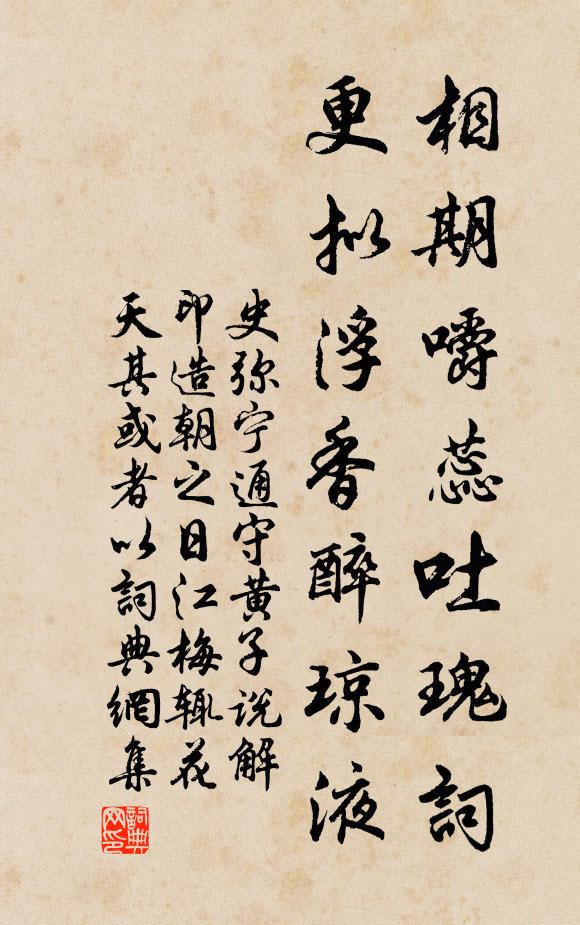 相期嚼蕊吐瑰詞
更拟浮香醉琼液
史弥宁通守黄子说解
印造朝之日江梅辄花
天其或者以詞典網集
詞典網印